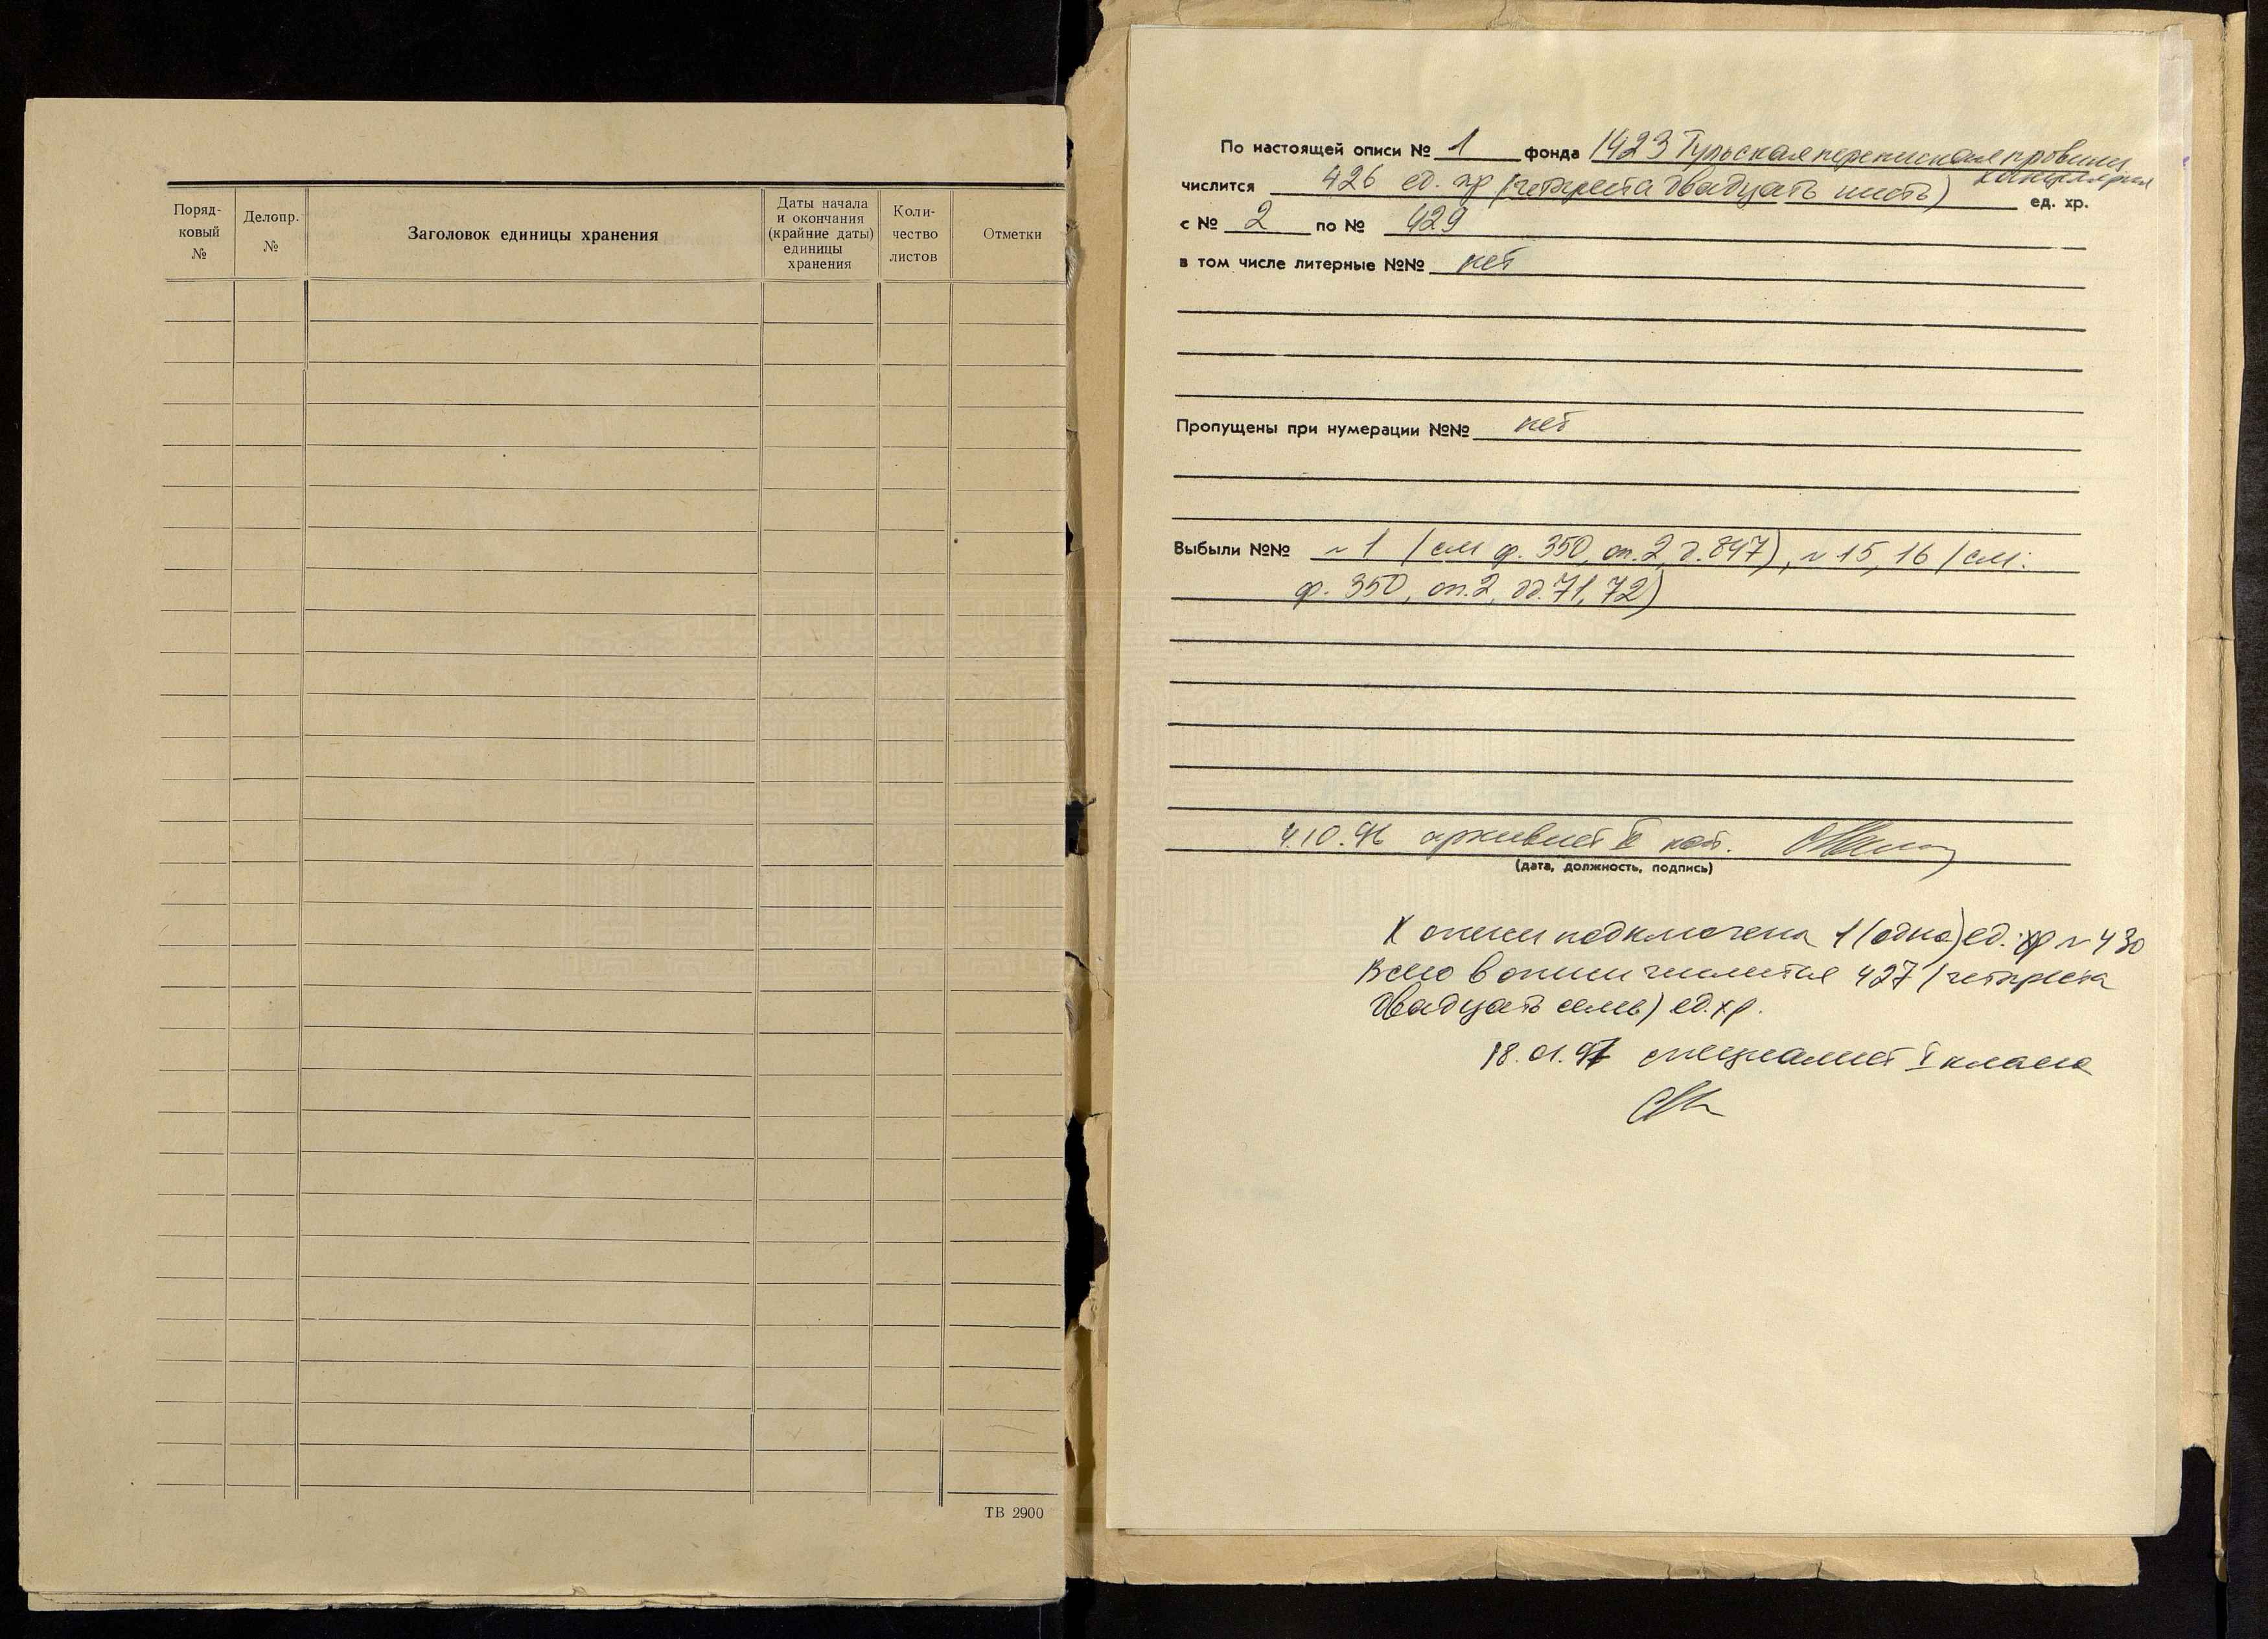 Поряд-
ковый
№
Делопр.
№
Заголовок единицы хранения
Даты начала
и окончания
(крайние даты)
единицы
хранения
Коли-
чество
листов
Отметки
ТВ 2900
По настоящей описи № 1 фонда 1423 Тульская переписная провинц.
канцелярия
числится 426 ед. хр (четыреста двадцать шесть) ед. хр.
с № 2 по № 429
в том числе литерные №№ нет
Пропущены при нумерации №№ нет
Выбыли №№ №1 (см ф. 350, оп.2, д.847), №15, 16 (см.
ф. 350, оп.2, дд.71, 72)
4.10.96 архивист II кат.
(дата, должность, подпись)
К описи подключена 1 (одна) ед. хр №430
Всего в описи числится 427 (четыреста
двадцать семь) ед.хр.
18.01.97 специалист I класса